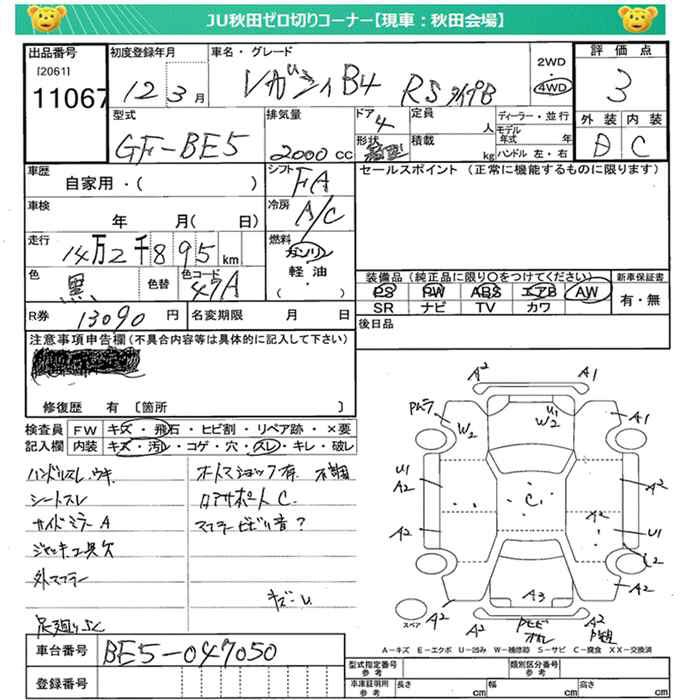 JU秋田ゼロ切りコーナー【現車：秋田会場】
出品番号
[2061]
11067
初度登録年月
12 3 月
車名・グレード
レガシィB4 RS タイプB
2WD
4WD
評価点
3
外装 内装
D C
型式
GF-BE5
排気量
2000 cc
ドア
4
形状
定員
人
積載
kg
ディーラー・並行
モデル年式
年
ハンドル 左・右
車歴
自家用・( )
シフト
FA
セールスポイント (正常に機能するものに限ります)
車検
年 月( 日)
冷房
A/C
走行
14万2千895 km
燃料
ガソリン
軽油
( )
色
黒
色替
色コード
47A
装備品 (純正品に限り○をつけてください)
PS PW ABS エアB AW
SR ナビ TV カワ
新車保証書
有・無
R券
13090 円
名変期限
月 日
後日品
注意事項申告欄 (不具合内容等は具体的に記入して下さい)
修復歴 有 〔箇所 〕
検査員記入欄
FW キズ・飛石・ヒビ割・リペア跡・×要
内装 キズ・汚レ・コゲ・穴・スレ・キレ・破レ
ハンドルスレ ウキ
シートスレ
サイドミラー A
ジャッキ工具欠
外マフラー
足廻りSC
オートマショック有 不調
ロアサポート C
マフラービビリ音？
キズ-U
A2 A1
PムラW2
U1
W2
A1
U1
A2
C
A2
A2
A2
U1
C2
A3
A2
A2
スペア
A=キズ E=エクボ U=凹み W=補修跡 S=サビ C=腐食 XX=交換済
車台番号
BE5-047050
登録番号
型式指定番号
参考
類別区分番号
参考
車庫証明用
参考
長さ cm
幅 cm
高さ cm